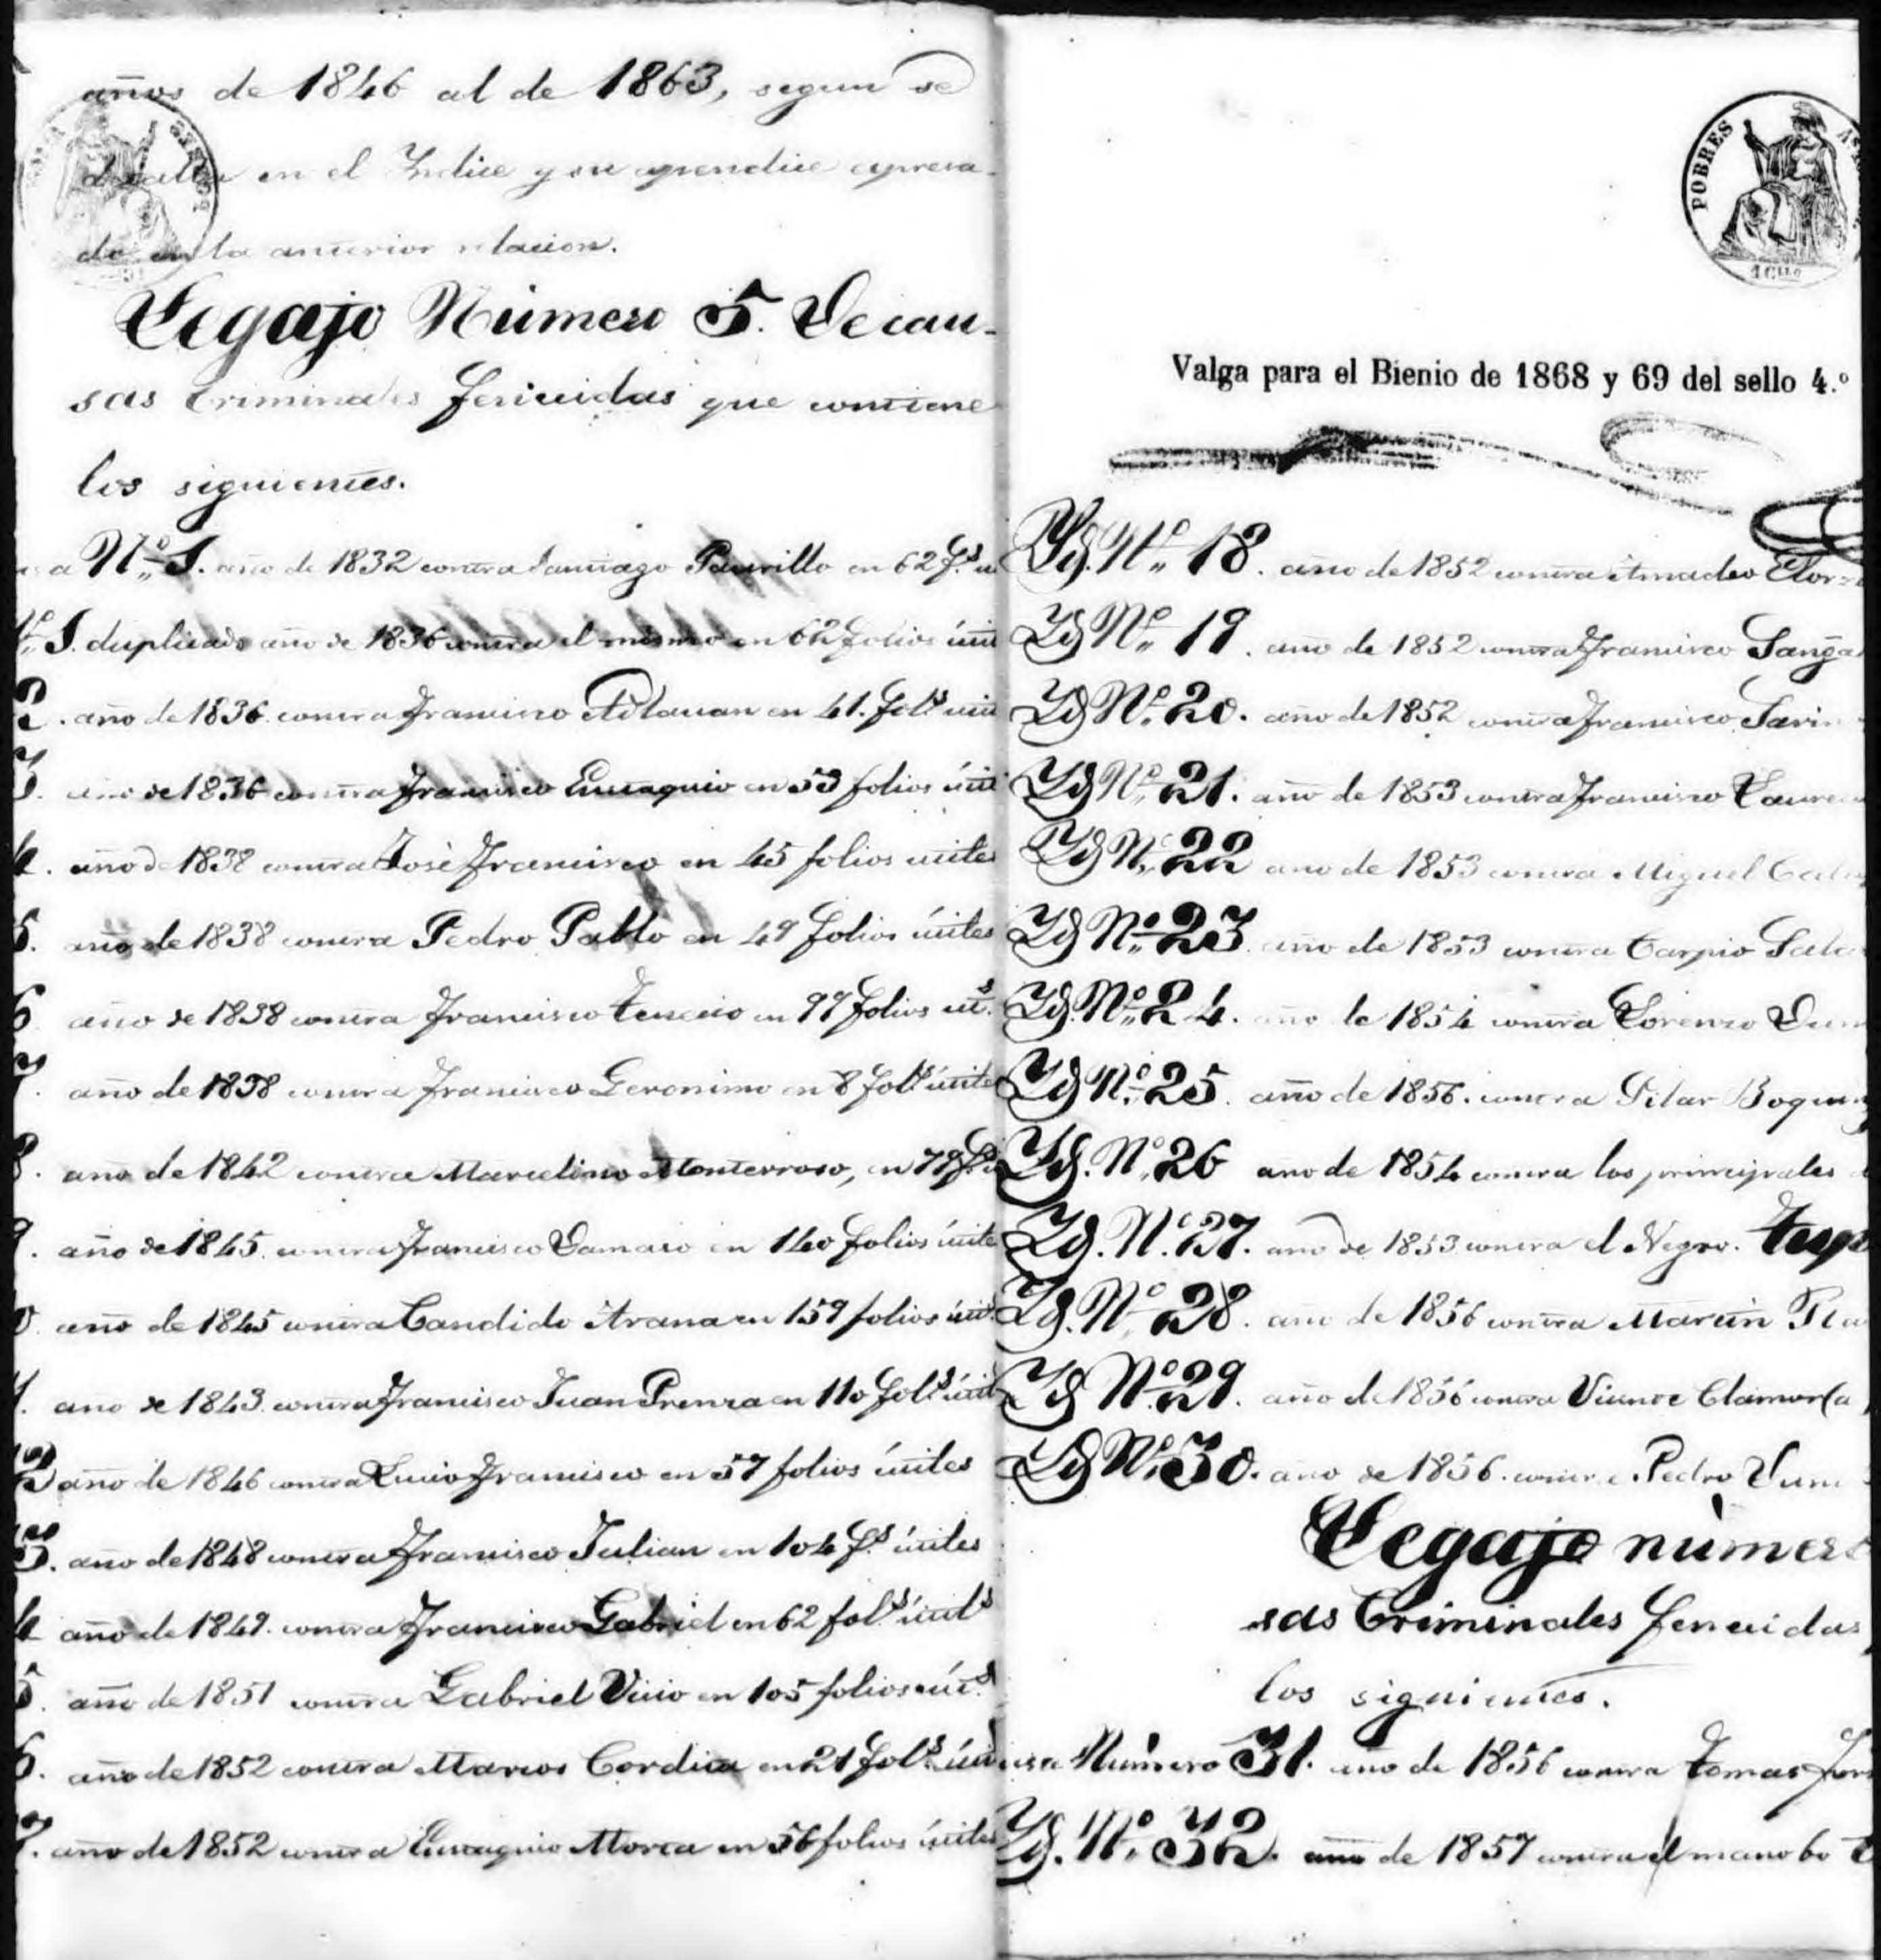 años de 1846 al de 1863, segun se
detalla en el Yndice y su apendice espresa-
do en la anterior relacion.
Legajo Número 5. De cau-
sas Criminales fenecidas que contiene
los siguientes.
a Nº 1. año de 1832 contra Santiago en 62 f.s
Nº 1. duplicado año de 1836 contra el mismo en 62 folios útil
2. año de 1836 contra Francisco en 41. fol.s util
3. año de 1836 contra Francisco Eustaquio en 53 folios útil
4. año de 1838 contra José Francisco en 45 folios utiles
5. año de 1838 contra Pedro Pablo en 49 folios útiles
6 año de 1838 contra Francisco en 99 folios ut.s
7. año de 1838 contra Francisco Geronimo en 8 fol.s útiles
8. año de 1842 contra Marcelino Monterroso, en 79 f.s
9. año de 1845. contra Francisco Damaso en 140 folios útile
0. año de 1845 contra Candido Arana en 159 folios útil
1. año de 1843. contra Francisco Juan Prenza en 110 fol.s útil
2 año de 1846 contra Lucio Francisco en 57 folios útiles
3. año de 1848 contra Francisco Julian en 104 f.s útiles
4 año de 1849. contra Francisco Gabriel en 62 fol.s útil.s
5. año de 1851 contra Gabriel Vicio en 105 folios út.s
6. año de 1852 contra Marcos Cordia en 21 fol.s útil
7. año de 1852 contra Eustaquio Morca en 56 folios útiles
POBRES
Valga para el Bienio de 1868 y 69 del sello 4.º
Yd. Nº 18. año de 1852 contra Amadeo Elor
Yd Nº 19. año de 1852 contra Francisco Sanga
Yd Nº 20. año de 1852 contra Francisco Sarin
Yd Nº 21. año de 1853 contra Francisco Laure
Yd Nº 22 año de 1853 contra Miguel
Yd Nº 23 año de 1853 contra Carpio Sala
Yd. Nº 24. año de 1854 contra Lorenzo Dum
Yd Nº 25. año de 1856. contra Pilar
Yd. Nº 26 año de 1854 contra los principales
Yd. Nº 27. año de 1853 contra el Negro.
Yd. Nº 28. año de 1856 contra Martin
Yd Nº 29. año de 1856 contra Vicente Clamor (a
Yd Nº 30. año de 1856. contra Pedro Dum
Legajo número
sas Criminales fenecidas
los siguientes.
usa Número 31. año de 1856 contra Tomas
Yd. Nº 32. año de 1857 contra el manobo